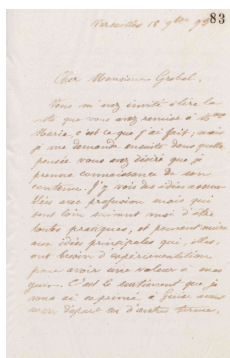 Versailles 18 9bre 93
83
Cher Monsieur Grobel.
Vous m'avez invité à lire la
note que vous avez remise à Mme
Maria, c'est ce que j'ai fait, mais
je me demande ensuite dans quelle
pensée vous avez désiré que je
prenne connaissance de son
contenu. J'y vois des idées accumu-
lées avec profusion mais qui
sont loin suivant moi d'être
toutes pratiques, et peuvent
aux idées principales qui, elles,
ont besoin d'expérimentation
pour avoir une valeur à mes
yeux. C'est le sentiment que je
vous ai exprimé à
mon départ en d'autres termes,